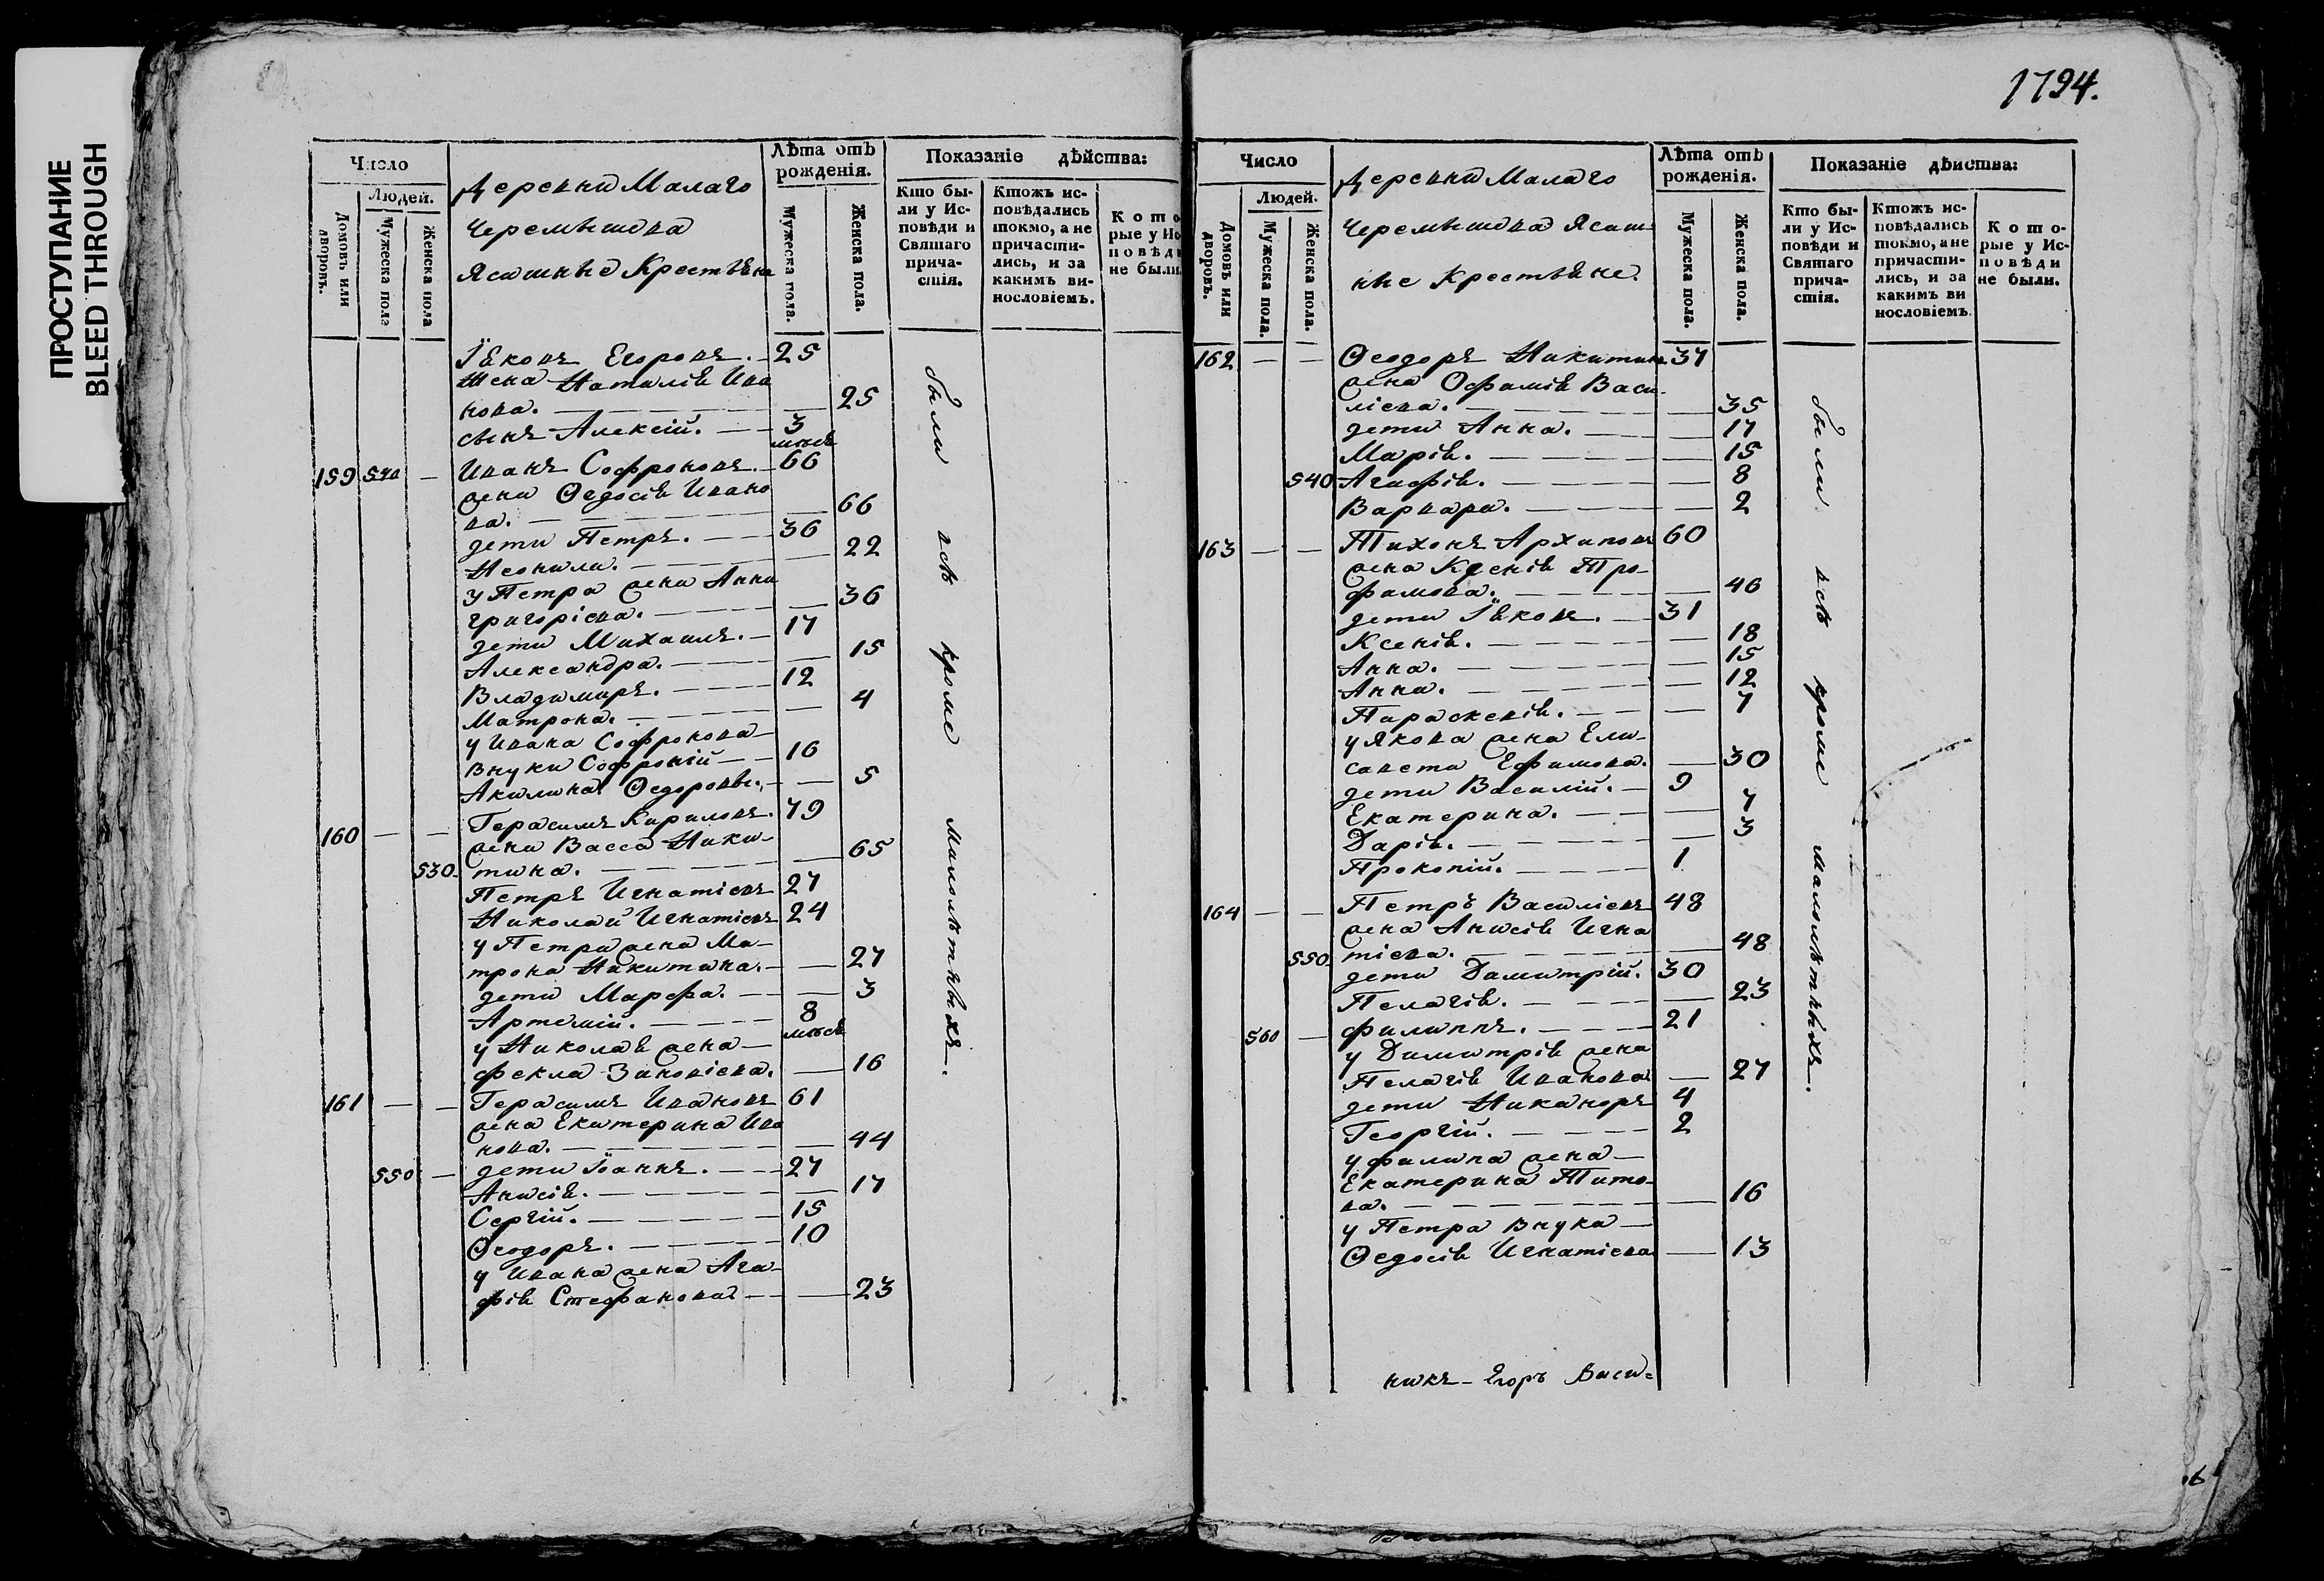 ПРОСТУПАНИЕ
BLEED THROUGH
1794.
Число
Людей.
Домовъ или дворовъ.
Мужеска пола
Женска пола
Деревни Малаго
Черемышева
Ясашныe Крестьяне
Лѣта отъ рожденія.
Мужеска пола.
Женска пола.
Показаніе дѣйства:
Кто были у Исповѣди и Святаго причастія.
Ктожъ исповѣдались токмо, а не причастились, и за какимъ винословіемъ.
Которые у Исповѣди не были.
Іяковъ Егоровъ. 25
жена Наталія Ива
нова. 25
сынъ Алексій. 3
мѣся
159 540 Иванъ Софроновъ. 66
жена Ѳедосія Ивано
ва. 66
дети Петръ. 36
Неонила. 22
у Петра жена Анна
григоріева. 36
дети Михаилъ. 17
Александра. 15
Владимиръ. 12
Матрона. 4
у Ивана Софронова
внуки Софроній 16
Акилина Ѳедоровы. 5
160 Герасимъ Кириловъ. 79
жена Васса Ники-
530 тина. 65
Петръ Игнатіевъ 27
Николай Игнатіевъ 24
у Петра жена Ма-
трона Никитина. 27
дети Марфа. 3
Артемій. 8
мѣся
у Николая жена
фекла Зиновіева. 16
161 Герасимъ Ивановъ 61
жена Екатерина Ива
нова. 44
550 дети Іоаннъ. 27
Анисія. 17
Сергій. 15
Ѳеодоръ. 10
у Ивана жена Ага-
фія Стефанова 23
были всѣ кроме малолѣтныхъ.
Число
Людей.
Домовъ или дворовъ.
Мужеска пола.
Женска пола.
Деревни Малаго
Черемышева Ясаш-
ные Крестьяне.
Лѣта отъ рожденія.
Мужеска пола.
Женска пола.
Показаніе дѣиства:
Кто были у Исповѣди и Святаго причастія.
Ктожъ исповѣдались токмо, а не причастились, и за какимъ ви нословіемъ.
Которые у Исповѣди не были.
162 Ѳеодоръ Никитинъ 37
жена Офимія Васи-
ліева. 35
дети Анна. 17
Марія. 15
540 Агафія. 8
Варвара. 2
163 Тихонъ Архиповъ 60
жена Ксенія Тро-
фимова. 46
дети Іяковъ. 31
Ксенія. 18
Анна. 15
Анна. 12
Параскевія. 7
у Якова жена Ели-
савета Ефимова. 30
дети Василій. 9
Екатерина. 7
Дарія. 3
Прокопій. 1
164 Петръ Василіевъ 48
жена Анисія Игна
550 тіева. 48
дети Димитрій. 30
Пелагія. 23
560 филиппъ. 21
у Димитрія жена
Пелагія Иванова 27
дети Никаноръ 4
Георгій. 2
у филипа жена
Екатерина Тито-
ва. 16
у Петра внука
Ѳедосія Игнатіева 13
были всѣ кроме малолѣтныхъ.
никъ Егоръ Васи=